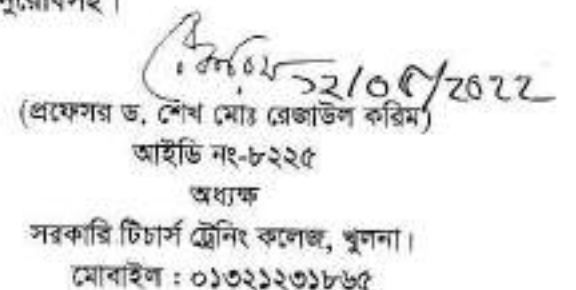 নুরোধসহ।
১২/০৫/2022
(প্রফেসর ড. শেখ মোঃ রেজাউল করিম)
আইডি নং-৮২২৫
অধ্যক্ষ
সরকারি টিচার্স ট্রেনিং কলেজ, খুলনা।
মোবাইল : ০১৩২১২৩১৮৬৫